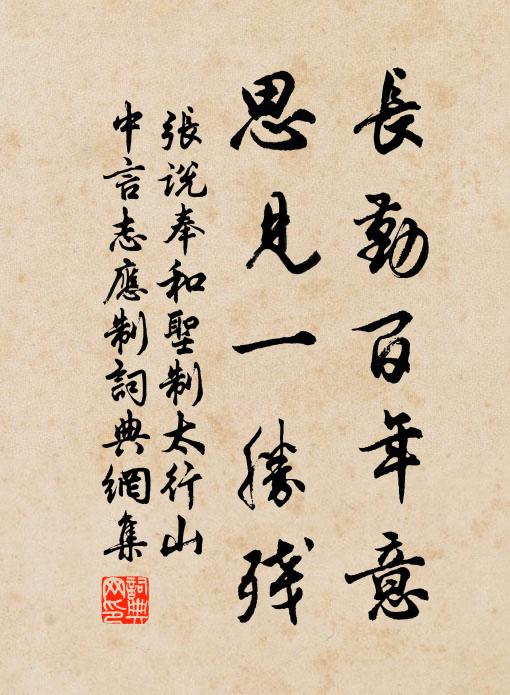 長勤百年意
思見一勝残
張説奉和聖制太行山
中言志應制詞典網集
詞典
网印